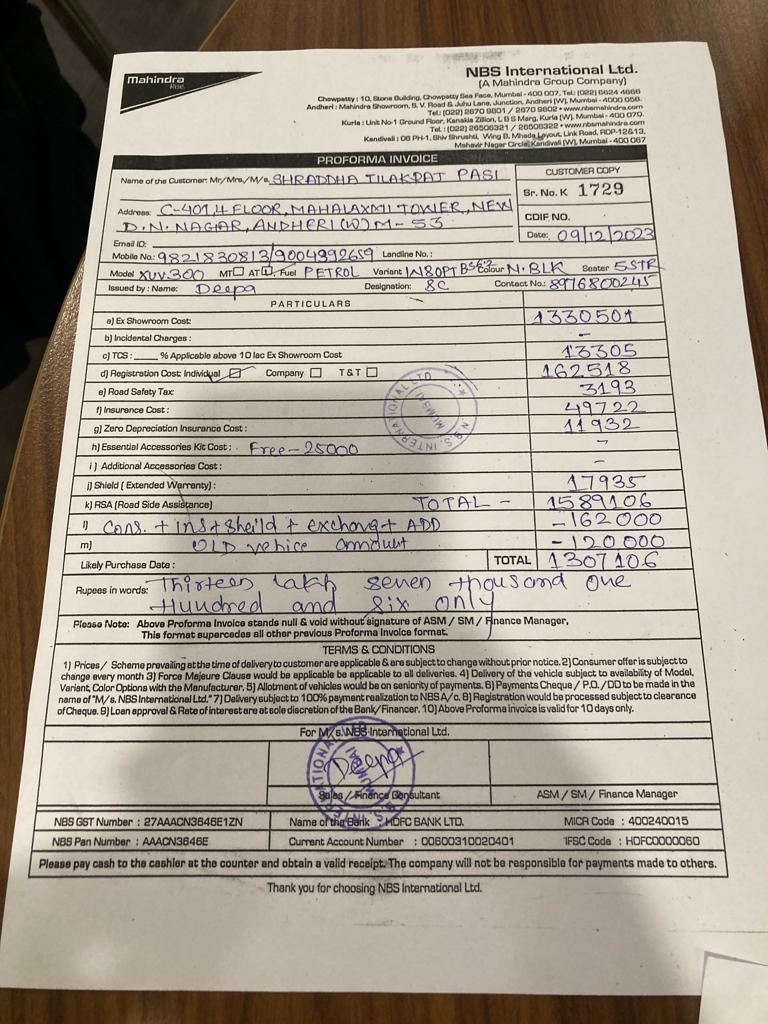 Mahindra
Rise.
NBS International Ltd.
(A Mahindra Group Company)
Chowpatty : 10, Stone Building, Chowpatty Sea Face, Mumbai - 400 007, Tel.: (022) 6624 4666
Andheri : Mahindra Showroom, S. V. Road & Juhu Lane, Junction, Andheri (W), Mumbai - 4000 058.
Tel.: (022) 2670 9801 / 2670 9802 • www.nbsmahindra.com
Kurla : Unit No-1 Ground Floor, Kanakia Zillion, L B S Marg, Kurla (W), Mumbai - 400 070.
Tel. : (022) 26506321 / 26506322 • www.nbsmahindra.com
Kandivali : 06 PH-1, Shiv Shrushti, Wing B, Mhada Layout, Link Road, RDP-12&13,
Mahavir Nagar Circle, Kandivali (W), Mumbai - 400 067
PROFORMA INVOICE
Name of the Customer: Mr/Mrs./M/s. SHRADDHA TILAKPAT PASI
CUSTOMER COPY
Sr. No. K 1729
Address: C-401,4 FLOOR, MAHALAXMI TOWER, NEW
D.N. NAGAR, ANDHERI (W) M-53
CDIF NO.
Email ID:
Date: 09/12/2023
Mobile No: 9821830813/9004992659 Landline No.:
Model XUV300 MT AT Fuel PETROL Variant W8OPT BS6.2 Colour N.BLK Seater 5STR
Issued by : Name: Deepa Designation: SC Contact No.: 8976800245
PARTICULARS
a) Ex Showroom Cost: 1330501
b) Incidental Charges : -
c) TCS : _____ % Applicable above 10 lac Ex Showroom Cost 13305
d) Registration Cost: Individual Company T & T 162518
e) Road Safety Tax: 3193
f) Insurance Cost : 49722
g) Zero Depreciation Insurance Cost : 11932
h) Essential Accessories Kit Cost : Free-25000 -
i) Additional Accessories Cost : -
j) Shield (Extended Warranty) : 17935
k) RSA (Road Side Assistance) TOTAL - 1589106
l) Cons. + ins + sheild + exchang + ADD -162000
m) OLD vehice amount -120000
Likely Purchase Date : TOTAL 1307106
Rupees in words: Thirteen lakh seven thousand one
Hundred and six only
Please Note: Above Proforma Invoice stands null & void without signature of ASM / SM / Finance Manager,
This format supercedes all other previous Proforma Invoice format.
TERMS & CONDITIONS
1) Prices/ Scheme prevailing at the time of delivery to customer are applicable & are subject to change without prior notice. 2) Consumer offer is subject to
change every month 3) Force Majeure Clause would be applicable be applicable to all deliveries. 4) Delivery of the vehicle subject to availability of Model,
Variant, Color Options with the Manufacturer. 5) Allotment of vehicles would be on seniority of payments. 6) Payments Cheque / P.O. /DD to be made in the
name of "M/s. NBS International Ltd." 7) Delivery subject to 100% payment realization to NBS A/c. 8) Registration would be processed subject to clearance
of Cheque. 9) Loan approval & Rate of interest are at sole discretion of the Bank/Financer. 10) Above Proforma invoice is valid for 10 days only.
For M/s. NBS International Ltd.
Deepa
Sales / Finance Consultant
ASM / SM / Finance Manager
NBS GST Number : 27AAACN3646E1ZN Name of the Bank : HDFC BANK LTD. MICR Code : 400240015
NBS Pan Number : AAACN3646E Current Account Number : 00600310020401 IFSC Code : HDFC0000060
Please pay cash to the cashier at the counter and obtain a valid receipt. The company will not be responsible for payments made to others.
Thank you for choosing NBS International Ltd.
N.B.S. INTERNATIONAL LTD
MUMBAI